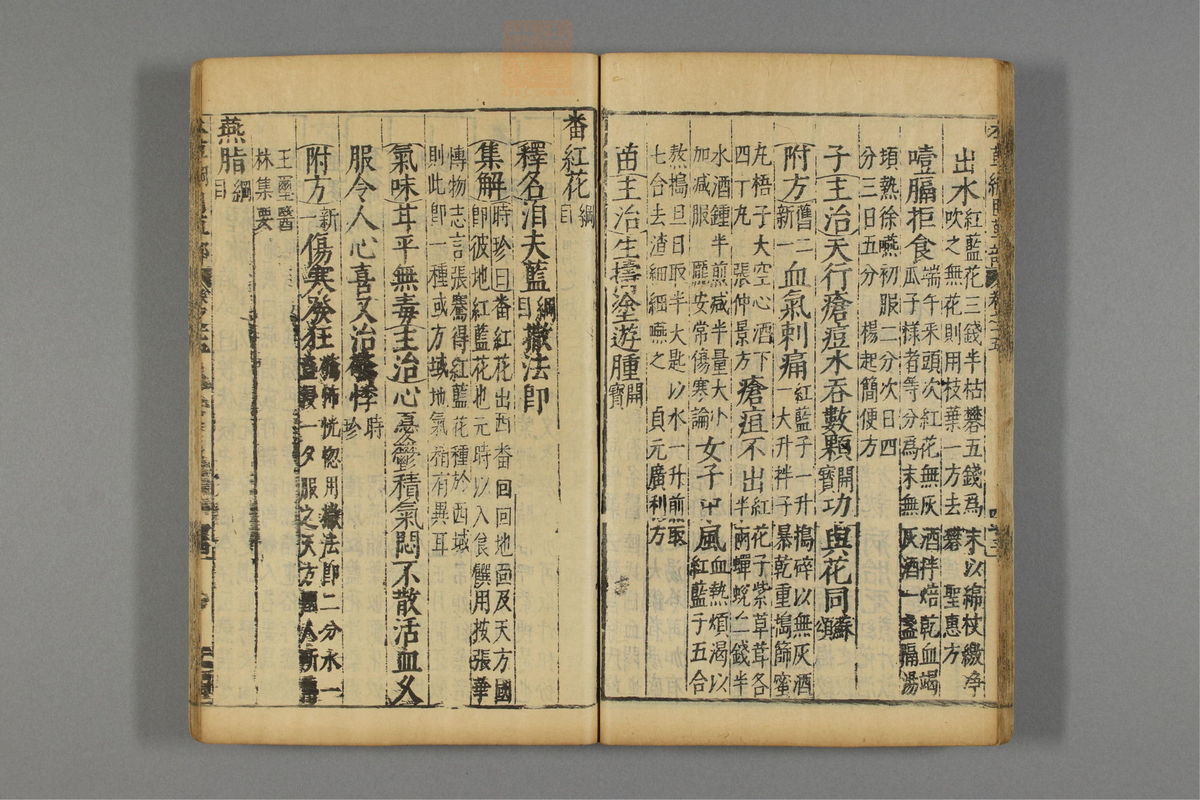 出水紅藍花三錢半枯礬五錢爲末以綿杖繳凈
吹之無花則用枝葉一方去礬 聖惠方
噎膈拒食端午采頭次紅花無灰酒拌焙乾血竭
瓜子樣者等分爲末無灰酒一盞隔湯
頓熱徐嚥初服二分次日四
分三日五分 楊起簡便方
子主治天行瘡痘水吞數顆開寶功與花同蘇頌
附方舊二新一血氣刺痛紅藍子一升搗碎以無灰酒
一大升拌子暴乾重搗篩蜜
丸梧子大空心酒下
四丁丸 張仲景方瘡疽不出紅花子紫草茸各
半兩蟬蛻二錢半
水酒鍾半煎減半量大小
加減服 龐安常傷寒論女子中風血熱煩渴以
紅藍子五合
熬搗旦日取半大匙以水一升煎取
七合去渣細細嚥之 貞元廣利方
苗主治生擣塗遊腫開寶
番紅花綱目
釋名洎夫藍綱目撒法即
集解時珍曰番紅花出西番回回地面及天方國
即彼地紅藍花也元時以入食饌用按張華
博物志言張騫得紅藍花種於西域
則此即一種或方域地氣稍有異耳
氣味甘平無毒主治心憂鬱積氣悶不散活血久
服令人心喜又治驚悸時珍
附方新一傷寒發狂驚怖恍惚用撒法即二分水一
盞浸一夕服之天方國人所
王璽醫
林集要
燕脂綱目